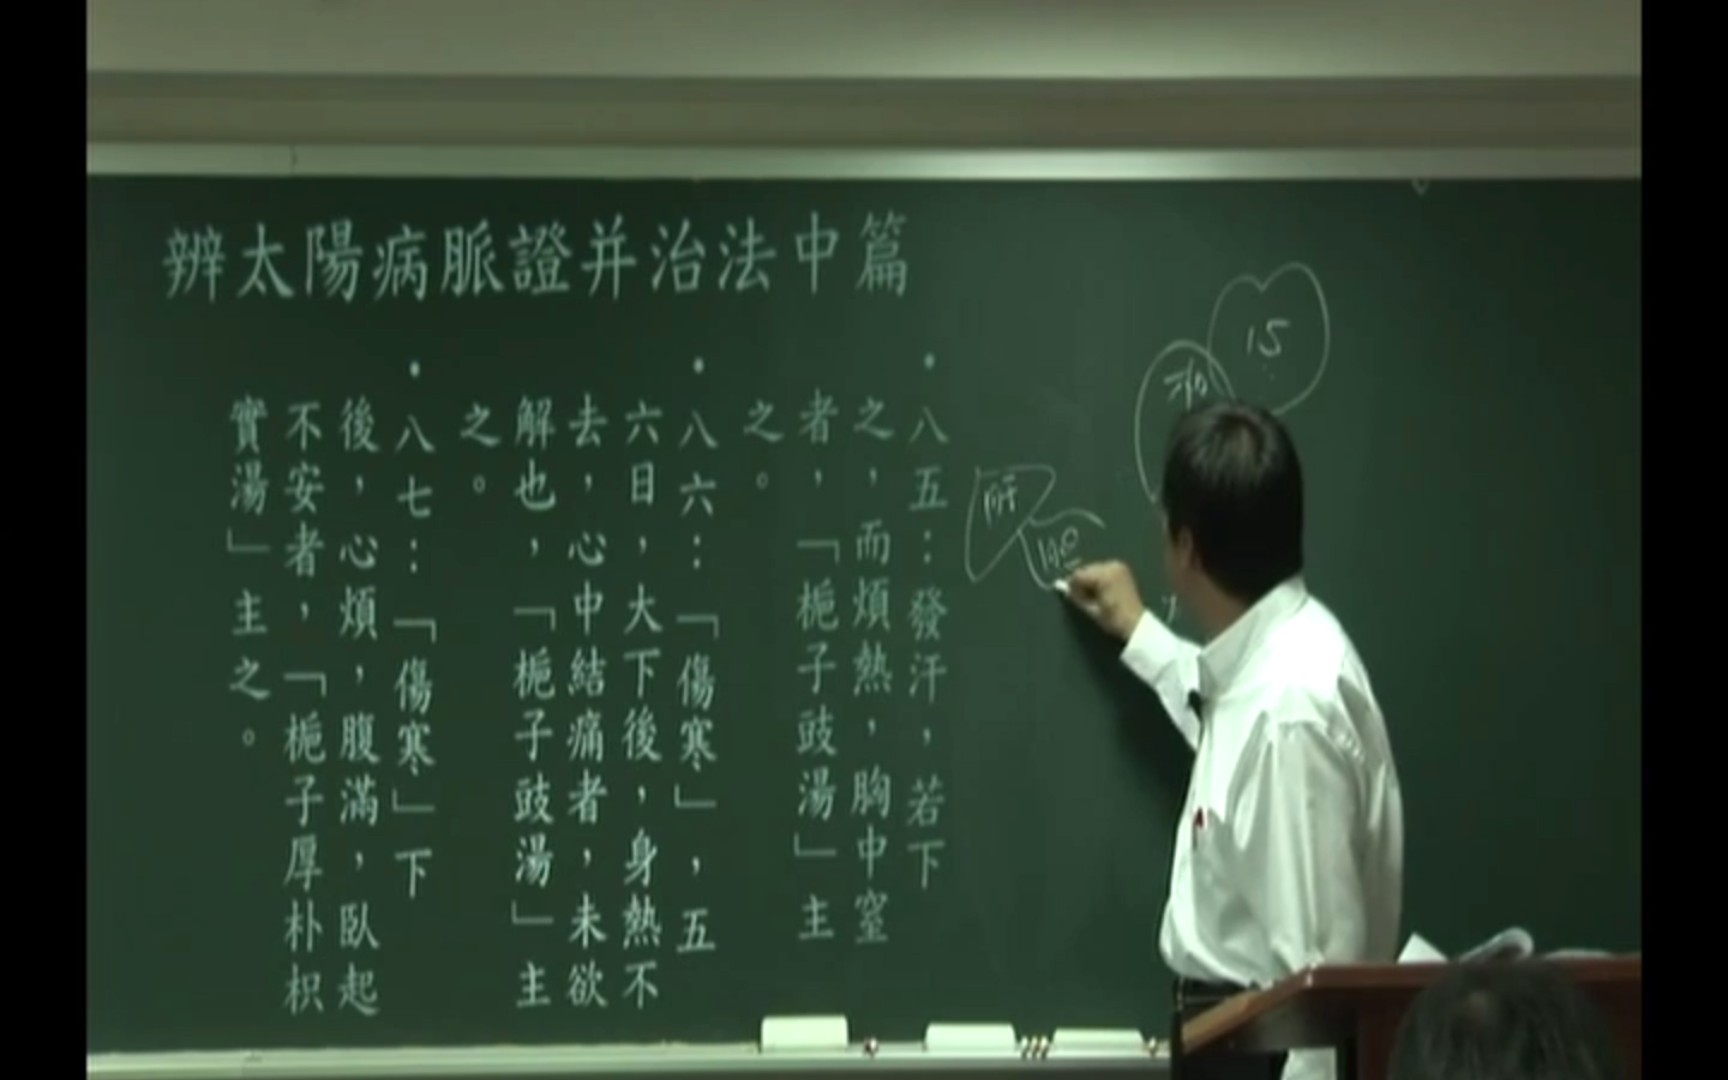 辨太陽病脈證并治法中篇
•八五：發汗，若下
之，而煩熱，胸中窒
者，「梔子豉湯」主
之。
•八六：「傷寒」，五
六日，大下後，身熱不
去，心中結痛者，未欲
解也，「梔子豉湯」主
之。
•八七：「傷寒」下
後，心煩，腹滿，臥起
不安者，「梔子厚朴枳
實湯」主之。
15
肝